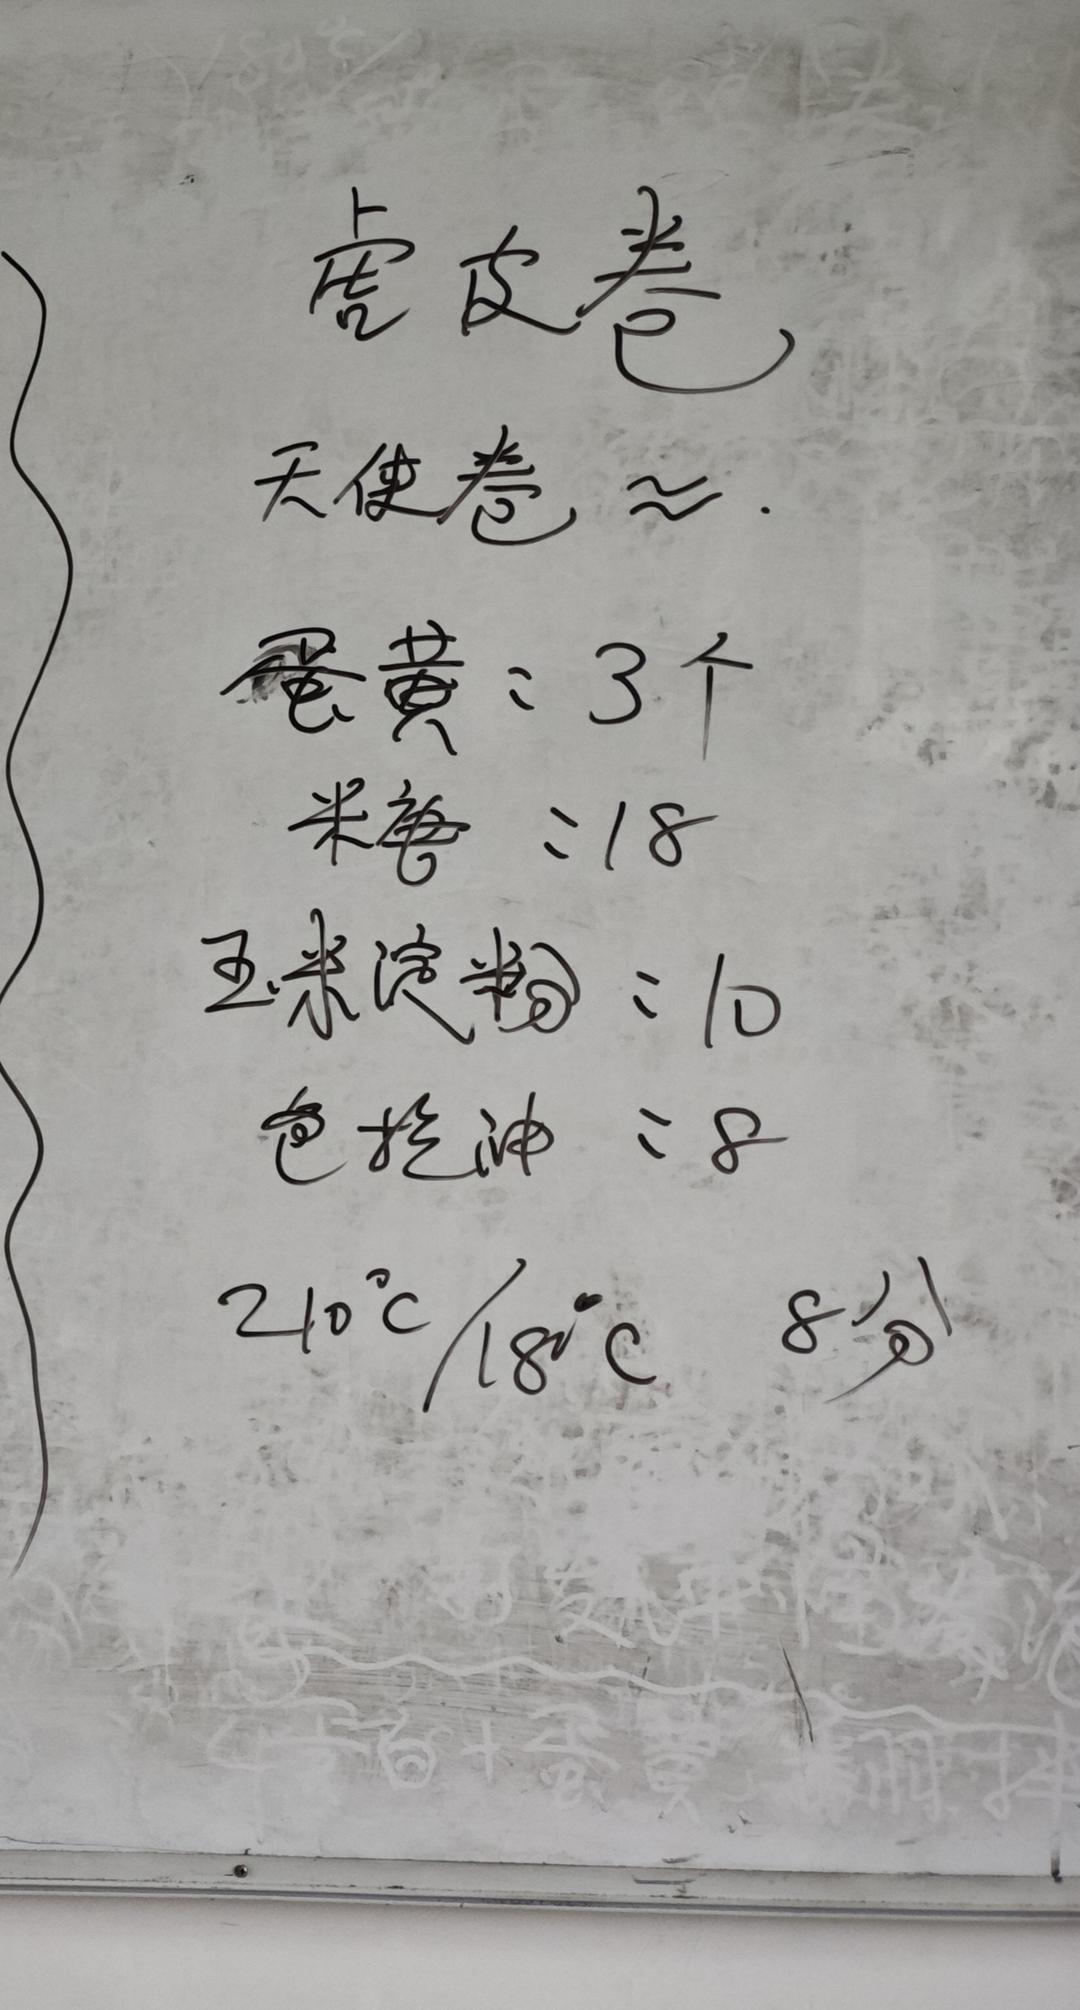 虎皮卷
天使卷 ≈.
蛋黄：3个
米糖：18
玉米淀粉：10
色拉油：8
210℃/18℃ 8分